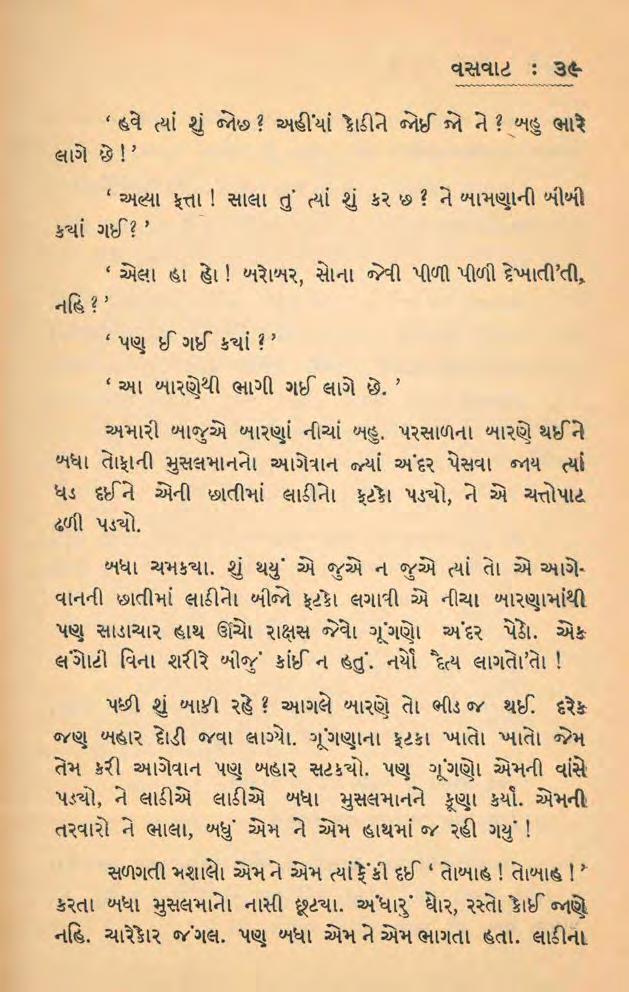 વસવાટ : ૩૯
‘ હવે ત્યાં શું જોછ ? અહીંયાં કોડીને જોઈ જો ને ? બહુ ભારે
લાગે છે ! ’
‘ અલ્યા ફત્તા ! સાલા તું ત્યાં શું કર છ ? ને બામણાની બીબી
કયાં ગઈ ? ’
‘ એલા હા હો ! બરોબર, સોના જેવી પીળી પીળી દેખાતી’તી,
નહિ ? ’
‘ પણ ઈ ગઈ કયાં ? ’
‘ આ બારણેથી ભાગી ગઈ લાગે છે. ’
અમારી બાજુએ બારણાં નીચાં બહુ. પરસાળના બારણે થઈને
બધા તોફાની મુસલમાનનો આગેવાન જ્યાં અંદર પેસવા જાય ત્યાં
ધડ દઈને એની છાતીમાં લાઠીનો ફટકો પડયો, ને એ ચત્તોપાટ
ઢળી પડયો.
બધા ચમકયા. શું થયું એ જુએ ન જુએ ત્યાં તો એ આગે-
વાનની છાતીમાં લાઠીનો બીજો ફટકો લગાવી એ નીચા બારણામાંથી
પણ સાડાચાર હાથ ઊંચો રાક્ષસ જેવો ગૂંગણો અંદર પેઠો. એક
લંગોટી વિના શરીરે બીજું કાંઈ ન હતું. નર્યો દૈત્ય લાગતો’તો !
પછી શું બાકી રહે ? આગલે બારણે તો ભીડ જ થઈ. દરેક
જણ બહાર દોડી જવા લાગ્યો. ગૂંગણાના ફટકા ખાતો ખાતો જેમ
તેમ કરી આગેવાન પણ બહાર સટકયો. પણ ગૂંગણો એમની વાંસે
પડયો, ને લાઠીએ લાઠીએ બધા મુસલમાનને કૂણા કર્યા. એમની
તરવારો ને ભાલા, બધું એમ ને એમ હાથમાં જ રહી ગયું !
સળગતી મશાલો એમ ને એમ ત્યાં ફેંકી દઈ ‘ તોબાહ ! તોબાહ ! ’
કરતા બધા મુસલમાનો નાસી છૂટયા. અંધારું ઘોર, રસ્તો કોઈ જાણે
નહિ. ચારેકોર જંગલ. પણ બધા એમ ને એમ ભાગતા હતા. લાઠીના